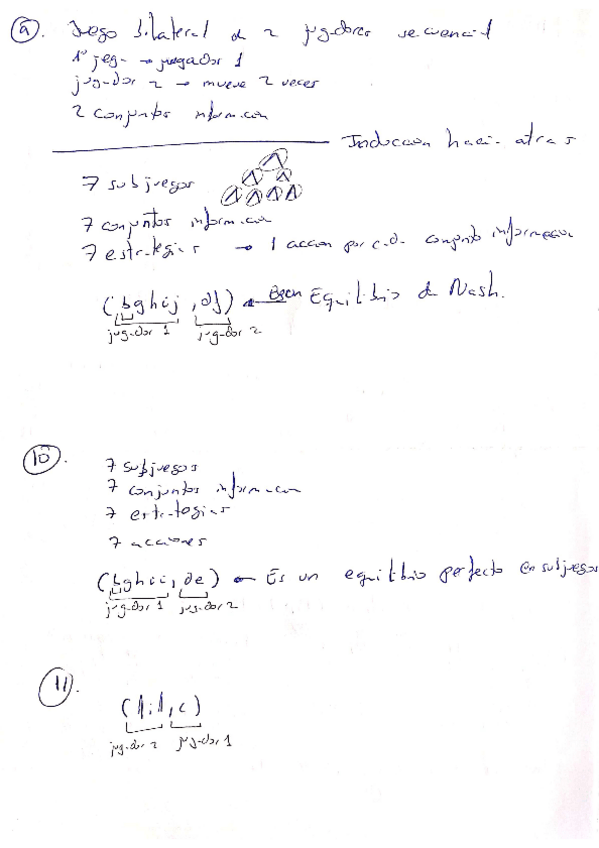 9. Juego bilateral de 2 jugadores secuencial
1º jug. → jugador 1
jugador 2 → mueve 2 veces
2 conjuntos informacion
Induccion hacia atras
7 subjuegos
7 conjuntos informacion
7 estrategias → 1 accion por cada conjunto informacion
Equilibrio de Nash.
jugador 1 jugador 2
10.
7 subjuegos
7 conjuntos informacion
7 estrategias
7 acciones
(bghii, de) ← Es un equilibrio perfecto en subjuegos
jugador 1 jugador 2
11.
jugador 2 jugador 1